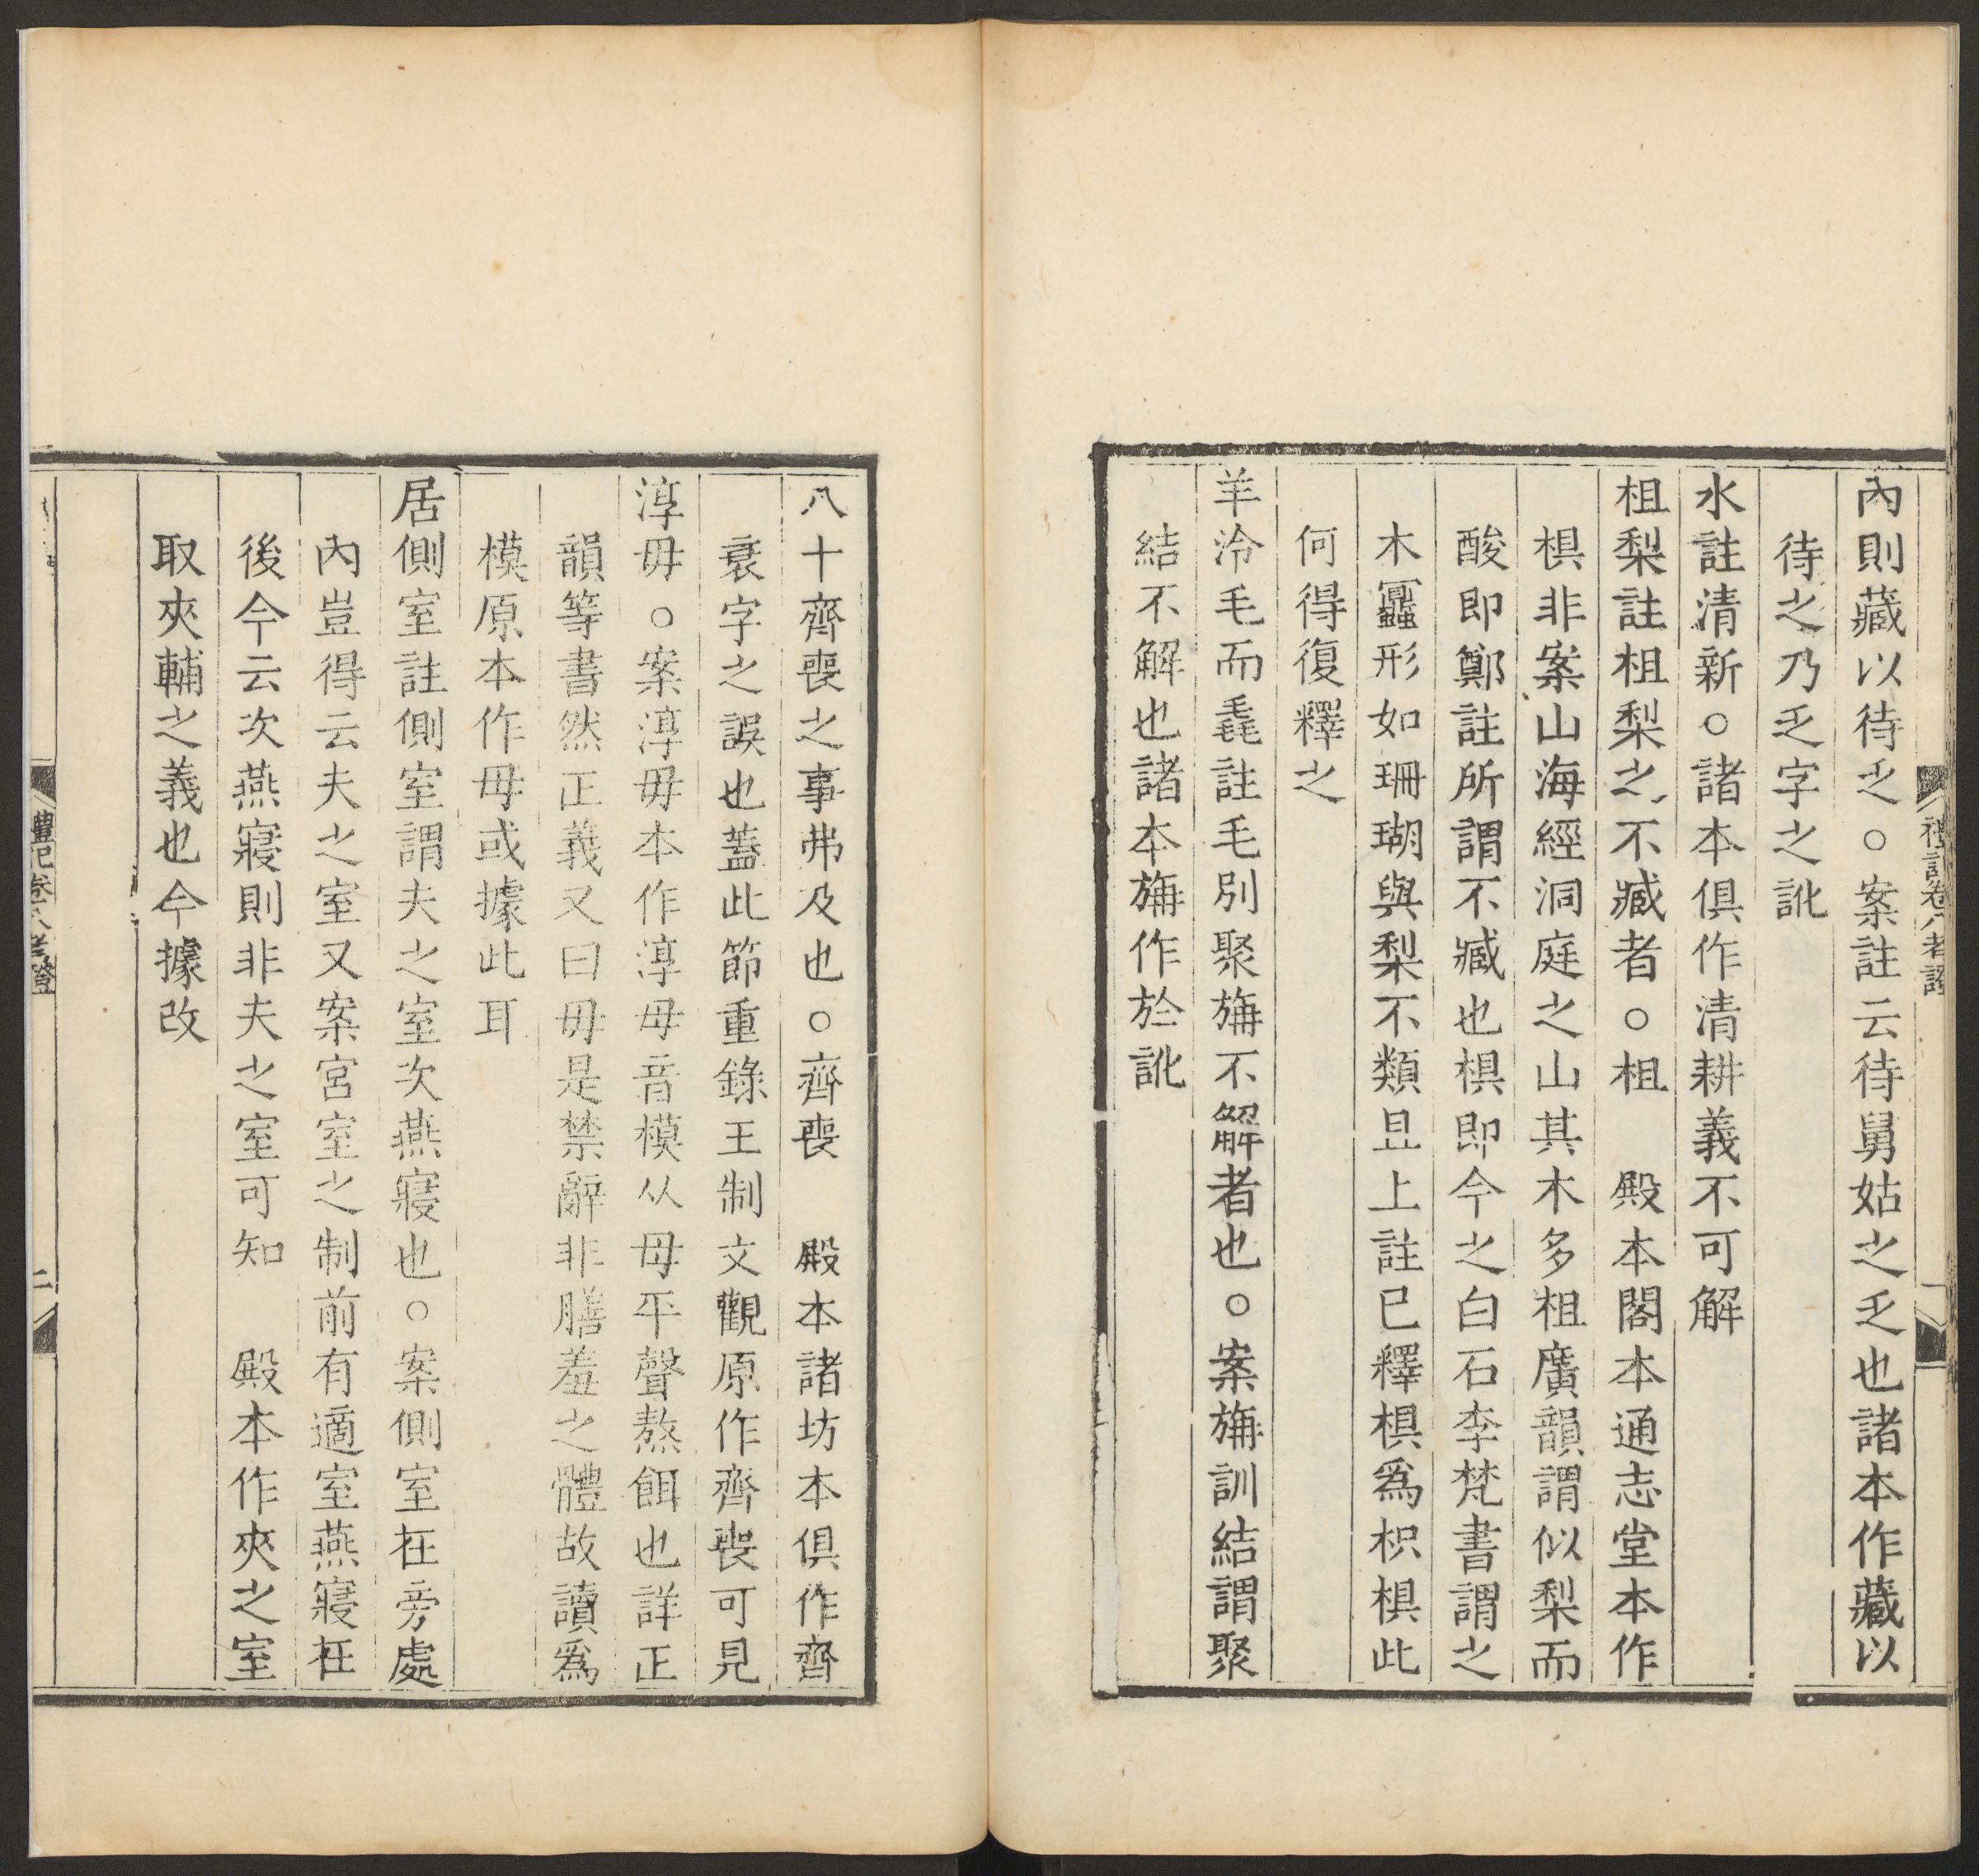 禮記卷八考證
一
內則藏以待乏○案註云待舅姑之乏也諸本作藏以
待之乃乏字之訛
水註清新○諸本俱作清耕義不可解
柤梨註柤梨之不臧者○柤 殿本閣本通志堂本作
椇非案山海經洞庭之山其木多柤廣韻謂似梨而
酸即鄭註所謂不臧也椇即今之白石李梵書謂之
木靊形如珊瑚與梨不類且上註已釋椇爲枳椇此
何得復釋之
羊泠毛而毳註毛別聚旃不解者也○案旃訓結謂聚
結不解也諸本旃作於訛
八十齊喪之事弗及也○齊喪 殿本諸坊本俱作齊
衰字之誤也蓋此節重錄王制文觀原作齊喪可見
淳毋○案淳毋本作淳母音模从母平聲熬餌也詳正
韻等書然正義又曰毋是禁辭非膳羞之體故讀爲
模原本作母或據此耳
居側室註側室謂夫之室次燕寢也○案側室在旁處
內豈得云夫之室又案宮室之制前有適室燕寢在
後今云次燕寢則非夫之室可知 殿本作夾之室
取夾輔之義也今據改
禮記卷八考證
二